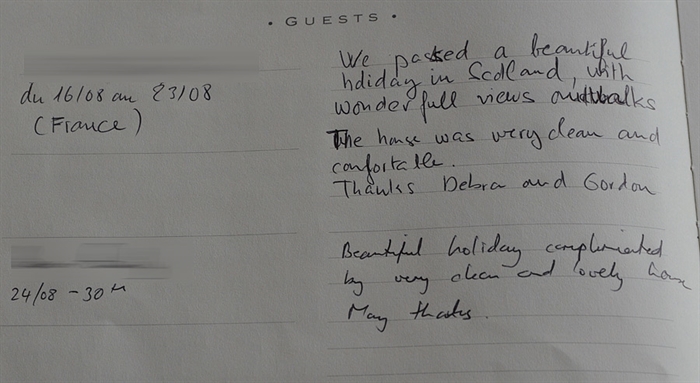 • GUESTS •
du 16/08 au 23/08
(France)
We passed a beautiful
holiday in Scotland, with
wonderfull views and walks
The house was very clean and
confortable.
Thanks Debra and Gordon
24/08 - 30th
Beautiful holiday
by very clean and lovely house
Many thanks.